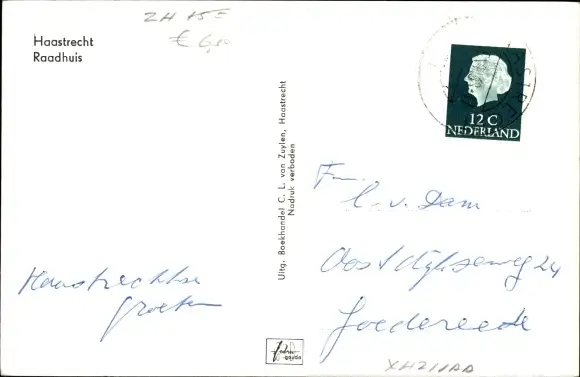 ZH 15=
€ 6,50
Haastrecht
Raadhuis
12 C
NEDERLAND
Uitg. Boekhandel C. L. van Zuylen, Haastrecht
Nadruk verboden
Fam.
C. v. Dam
Oostdijkseweg 24
Goedereede
Haastrechtse
groeten